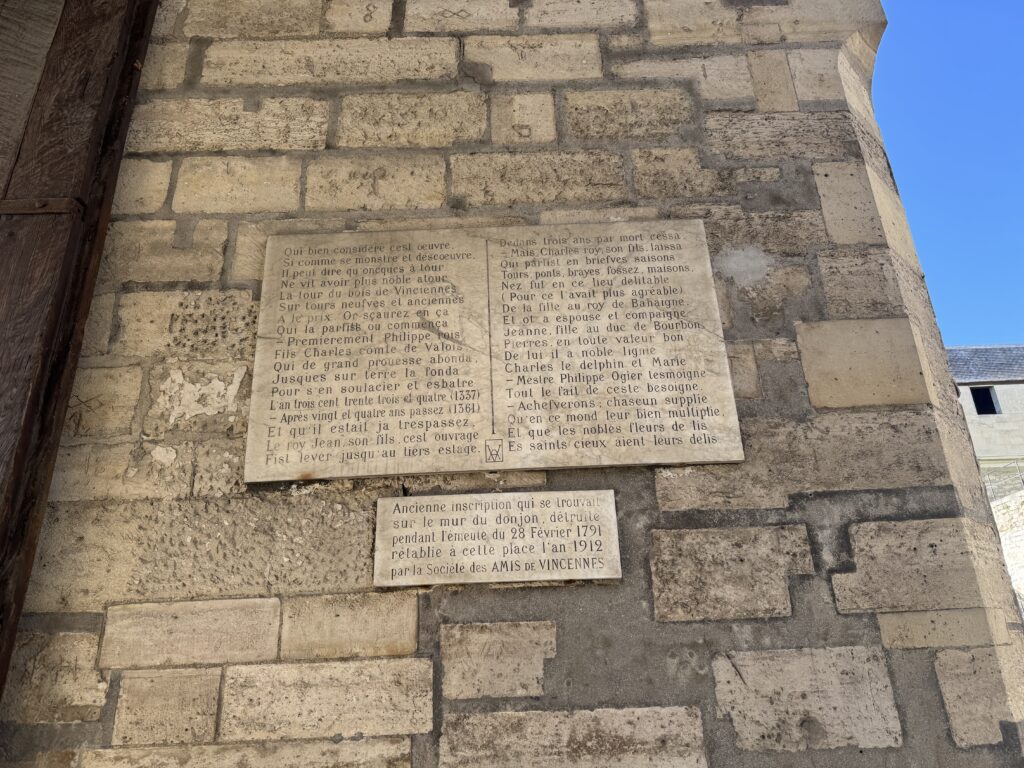 Qui bien considère cest œuvre,
Si comme se monstre et descoeuvre,
Il peut dire qu'oncques à tour
Ne vit avoir plus noble atour
La tour du bois de Vinciennes
Sur tours neufves et anciennes
A le prix. Or sçaurez en ça
Qui la parfist ou commença
– Premièrement Philippe rois
Fils Charles comte de Valois
Qui de grand prouesse abonda,
Jusques sur terre la fonda
Pour s'en soulacier et esbatre
L'an trois cent trente trois et quatre (1337)
– Après vingt et quatre ans passez (1361)
Et qu'il estait ja trespassez,
Le roy Jean, son fils, cest ouvrage
Fist lever jusqu'au tiers estage.
Dedans trois ans par mort cessa
– Mais, Charles roy, son fils, laissa
Qui parfist en briefves saisons
Tours, ponts, brayes, fossez, maisons.
Nez fut en ce lieu delitable
(Pour ce l'avait plus agréable)
De la fille au roy de Bahaigne
Et ot a espouse et compaigne
Jeanne, fille au duc de Bourbon
Pierres, en toute valeur bon
De lui il a noble lignie
Charles le delphin et Marie
– Mestre Philippe Ogier tesmoigne
Tout le fait de ceste besoigne.
– Achefverons; chaseun supplie
Qu'en ce mond leur bien multiplie,
Et que les nobles fleurs de lis
Es saints cieux aient leurs delis
Ancienne inscription qui se trouvait
sur le mur du donjon, détruite
pendant l'émeute du 28 Février 1791
rétablie à cette place l'an 1912
par la Société des AMIS DE VINCENNES